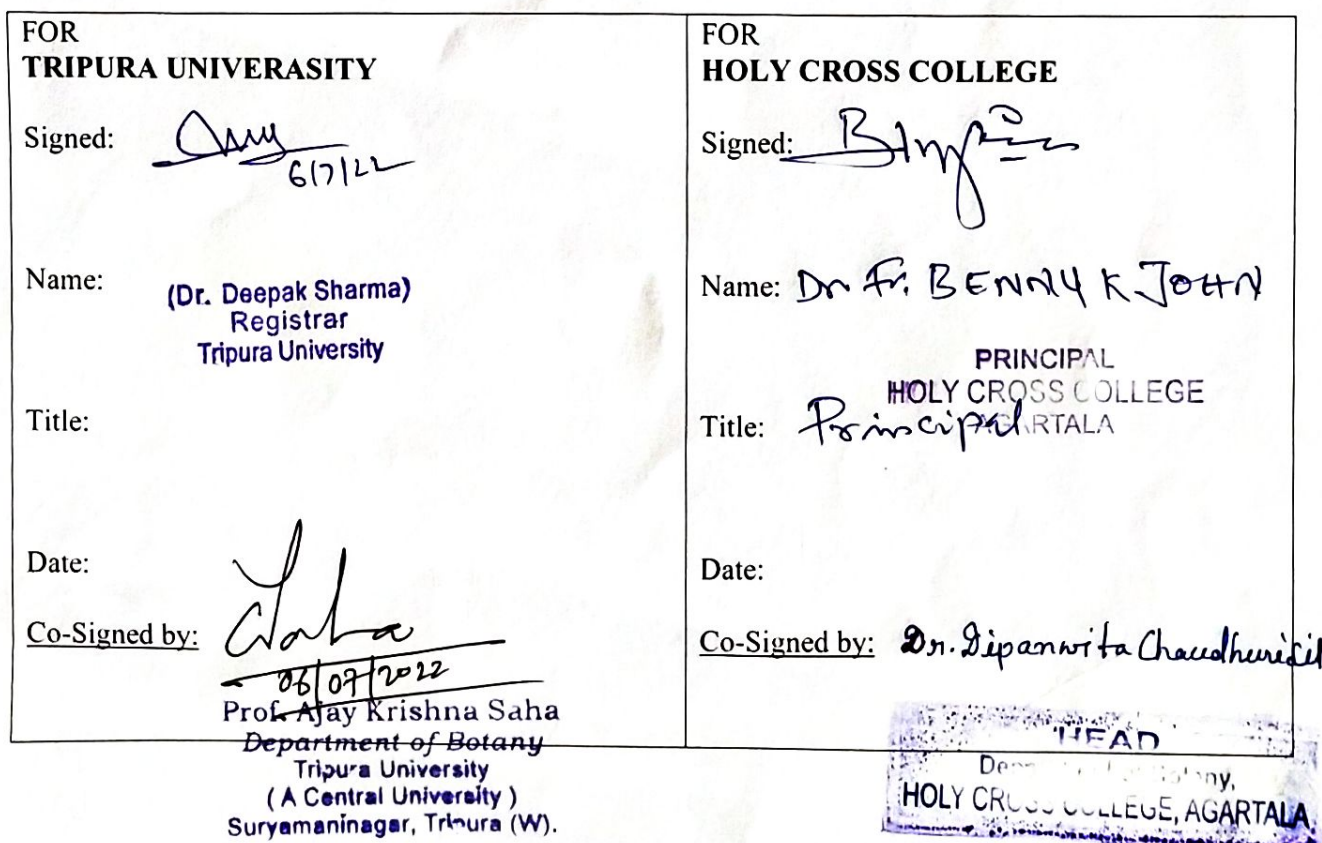 FOR
TRIPURA UNIVERASITY
Signed:
6/7/22
Name:
(Dr. Deepak Sharma)
Registrar
Tripura University
Title:
Date:
Co-Signed by: Saha
06/07/2022
Prof. Ajay Krishna Saha
Department of Botany
Tripura University
( A Central University )
Suryamaninagar, Tripura (W).
FOR
HOLY CROSS COLLEGE
Signed:
Name: Dr Fr. BENNY K JOHN
PRINCIPAL
HOLY CROSS COLLEGE
AGARTALA
Title: Principal
Date:
Co-Signed by: Dr. Dipanwita Chaudhuri
HEAD
Department of Botany,
HOLY CROSS COLLEGE, AGARTALA.